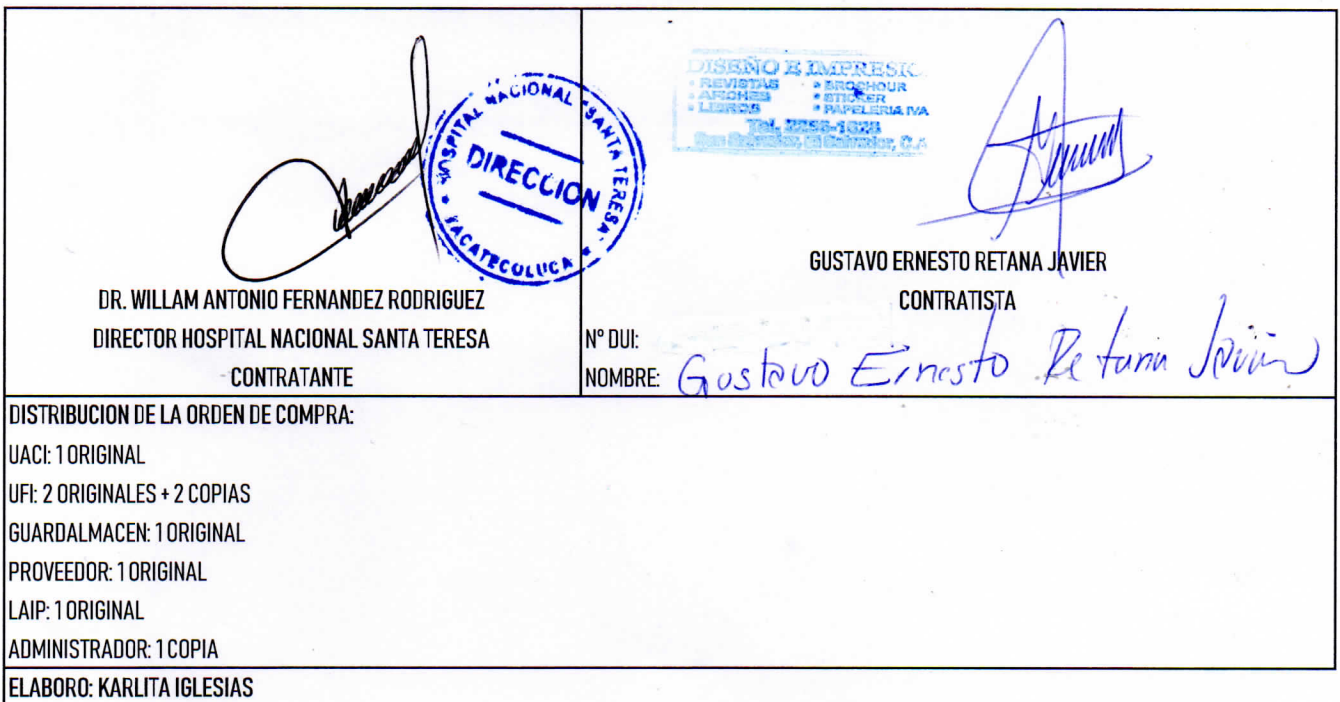 HOSPITAL NACIONAL "SANTA TERESA"
DIRECCION
ZACATECOLUCA
DR. WILLAM ANTONIO FERNANDEZ RODRIGUEZ
DIRECTOR HOSPITAL NACIONAL SANTA TERESA
CONTRATANTE
DISEÑO E IMPRESIO
• REVISTAS • BROCHOUR
• AFICHES • STICKER
• LIBROS • PAPELERIA IVA
San Salvador, El Salvador, C.A
GUSTAVO ERNESTO RETANA JAVIER
CONTRATISTA
N° DUI:
NOMBRE: Gustavo Ernesto Retana Javier
DISTRIBUCION DE LA ORDEN DE COMPRA:
UACI: 1 ORIGINAL
UFI: 2 ORIGINALES + 2 COPIAS
GUARDALMACEN: 1 ORIGINAL
PROVEEDOR: 1 ORIGINAL
LAIP: 1 ORIGINAL
ADMINISTRADOR: 1 COPIA
ELABORO: KARLITA IGLESIAS